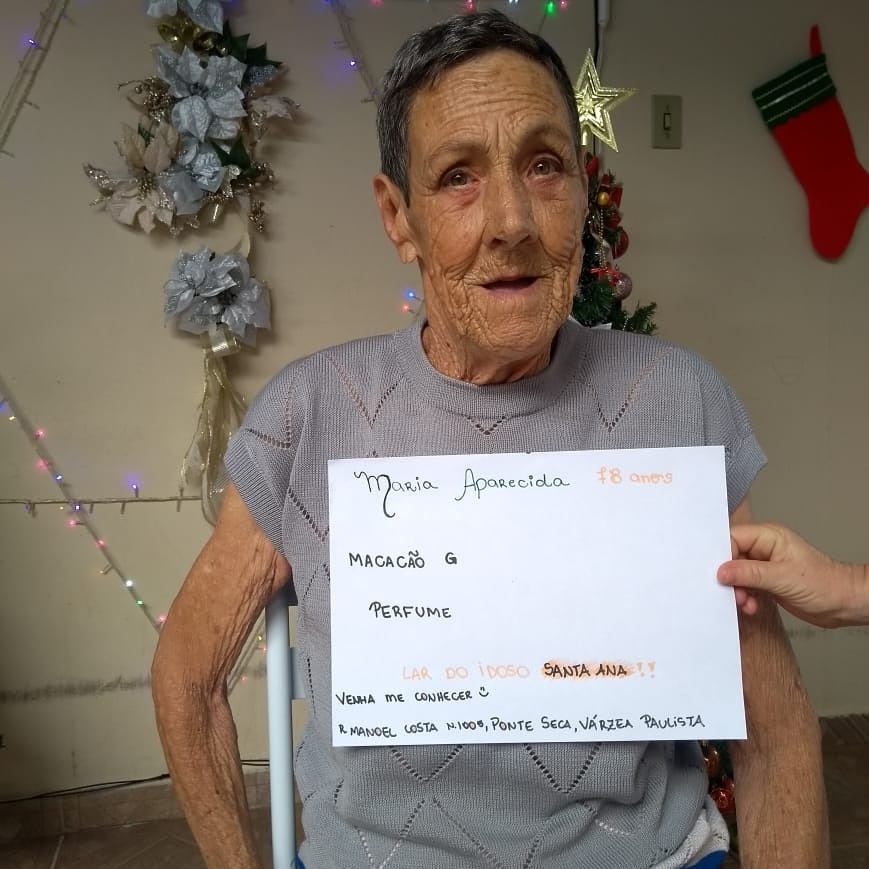 Maria Aparecida 78 anos
MACACÃO G
PERFUME
LAR DO iDOSO SANTA ANA!!
VENHA ME CONHECER
R MANOEL COSTA N.1005, PONTE SECA, VÁRZEA PAULISTA